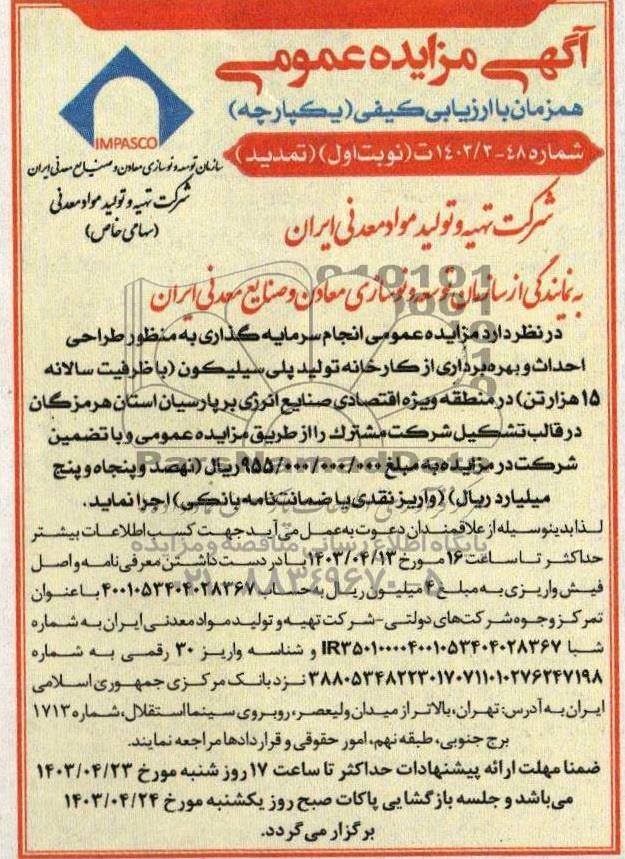 آگهی مزایده عمومی
همزمان با ارزیابی کیفی (یکپارچه)
شماره ۴۸-۱۴۰۳/۲ت (نوبت اول) (تمدید)
IMPASCO
سازمان توسعه و نوسازی معادن و صنایع معدنی ایران
شرکت تهیه و تولید مواد معدنی
(سهامی خاص)
شرکت تهیه و تولید مواد معدنی ایران
به نمایندگی از سازمان توسعه و نوسازی معادن و صنایع معدنی ایران
در نظر دارد مزایده عمومی انجام سرمایه گذاری به منظور طراحی
احداث و بهره برداری از کارخانه تولید پلی سیلیکون (با ظرفیت سالانه
۱۵ هزار تن) در منطقه ویژه اقتصادی صنایع انرژی بر پارسیان استان هرمزگان
در قالب تشکیل شرکت مشترک را از طریق مزایده عمومی و با تضمین
شرکت در مزایده به مبلغ ۹۵۵/۰۰۰/۰۰۰/۰۰۰ ریال (نهصد و پنجاه و پنج
میلیارد ریال) (واریز نقدی یا ضمانت نامه بانکی) اجرا نماید.
لذا بدینوسیله از علاقمندان دعوت به عمل می آید جهت کسب اطلاعات بیشتر
حداکثر تا ساعت ۱۶ مورخ ۱۴۰۳/۰۴/۱۳ با در دست داشتن معرفی نامه و اصل
فیش واریزی به مبلغ ۴ میلیون ریال به حساب ۴۰۰۱۰۵۳۴۰۴۰۲۸۳۶۷ با عنوان
تمرکز وجوه شرکت های دولتی-شرکت تهیه و تولید مواد معدنی ایران به شماره
شبا IR۳۵۰۱۰۰۰۰۴۰۰۱۰۵۳۴۰۴۰۲۸۳۶۷ و شناسه واریز ۳۰ رقمی به شماره
۳۸۸۰۵۳۴۸۲۲۳۰۱۷۰۷۱۱۰۱۰۲۷۶۲۴۷۱۹۸ نزد بانک مرکزی جمهوری اسلامی
ایران به آدرس: تهران، بالاتر از میدان ولیعصر، روبروی سینما استقلال، شماره ۱۷۱۳
برج جنوبی، طبقه نهم، امور حقوقی و قراردادها مراجعه نمایند.
ضمنا مهلت ارائه پیشنهادات حداکثر تا ساعت ۱۷ روز شنبه مورخ ۱۴۰۳/۰۴/۲۳
می باشد و جلسه بازگشایی پاکات صبح روز یکشنبه مورخ ۱۴۰۳/۰۴/۲۴
برگزار می گردد.
پایگاه اطلاع رسانی مناقصه و مزایده
۰۲۱-۸۸۳۴۹۶۷۰-۵